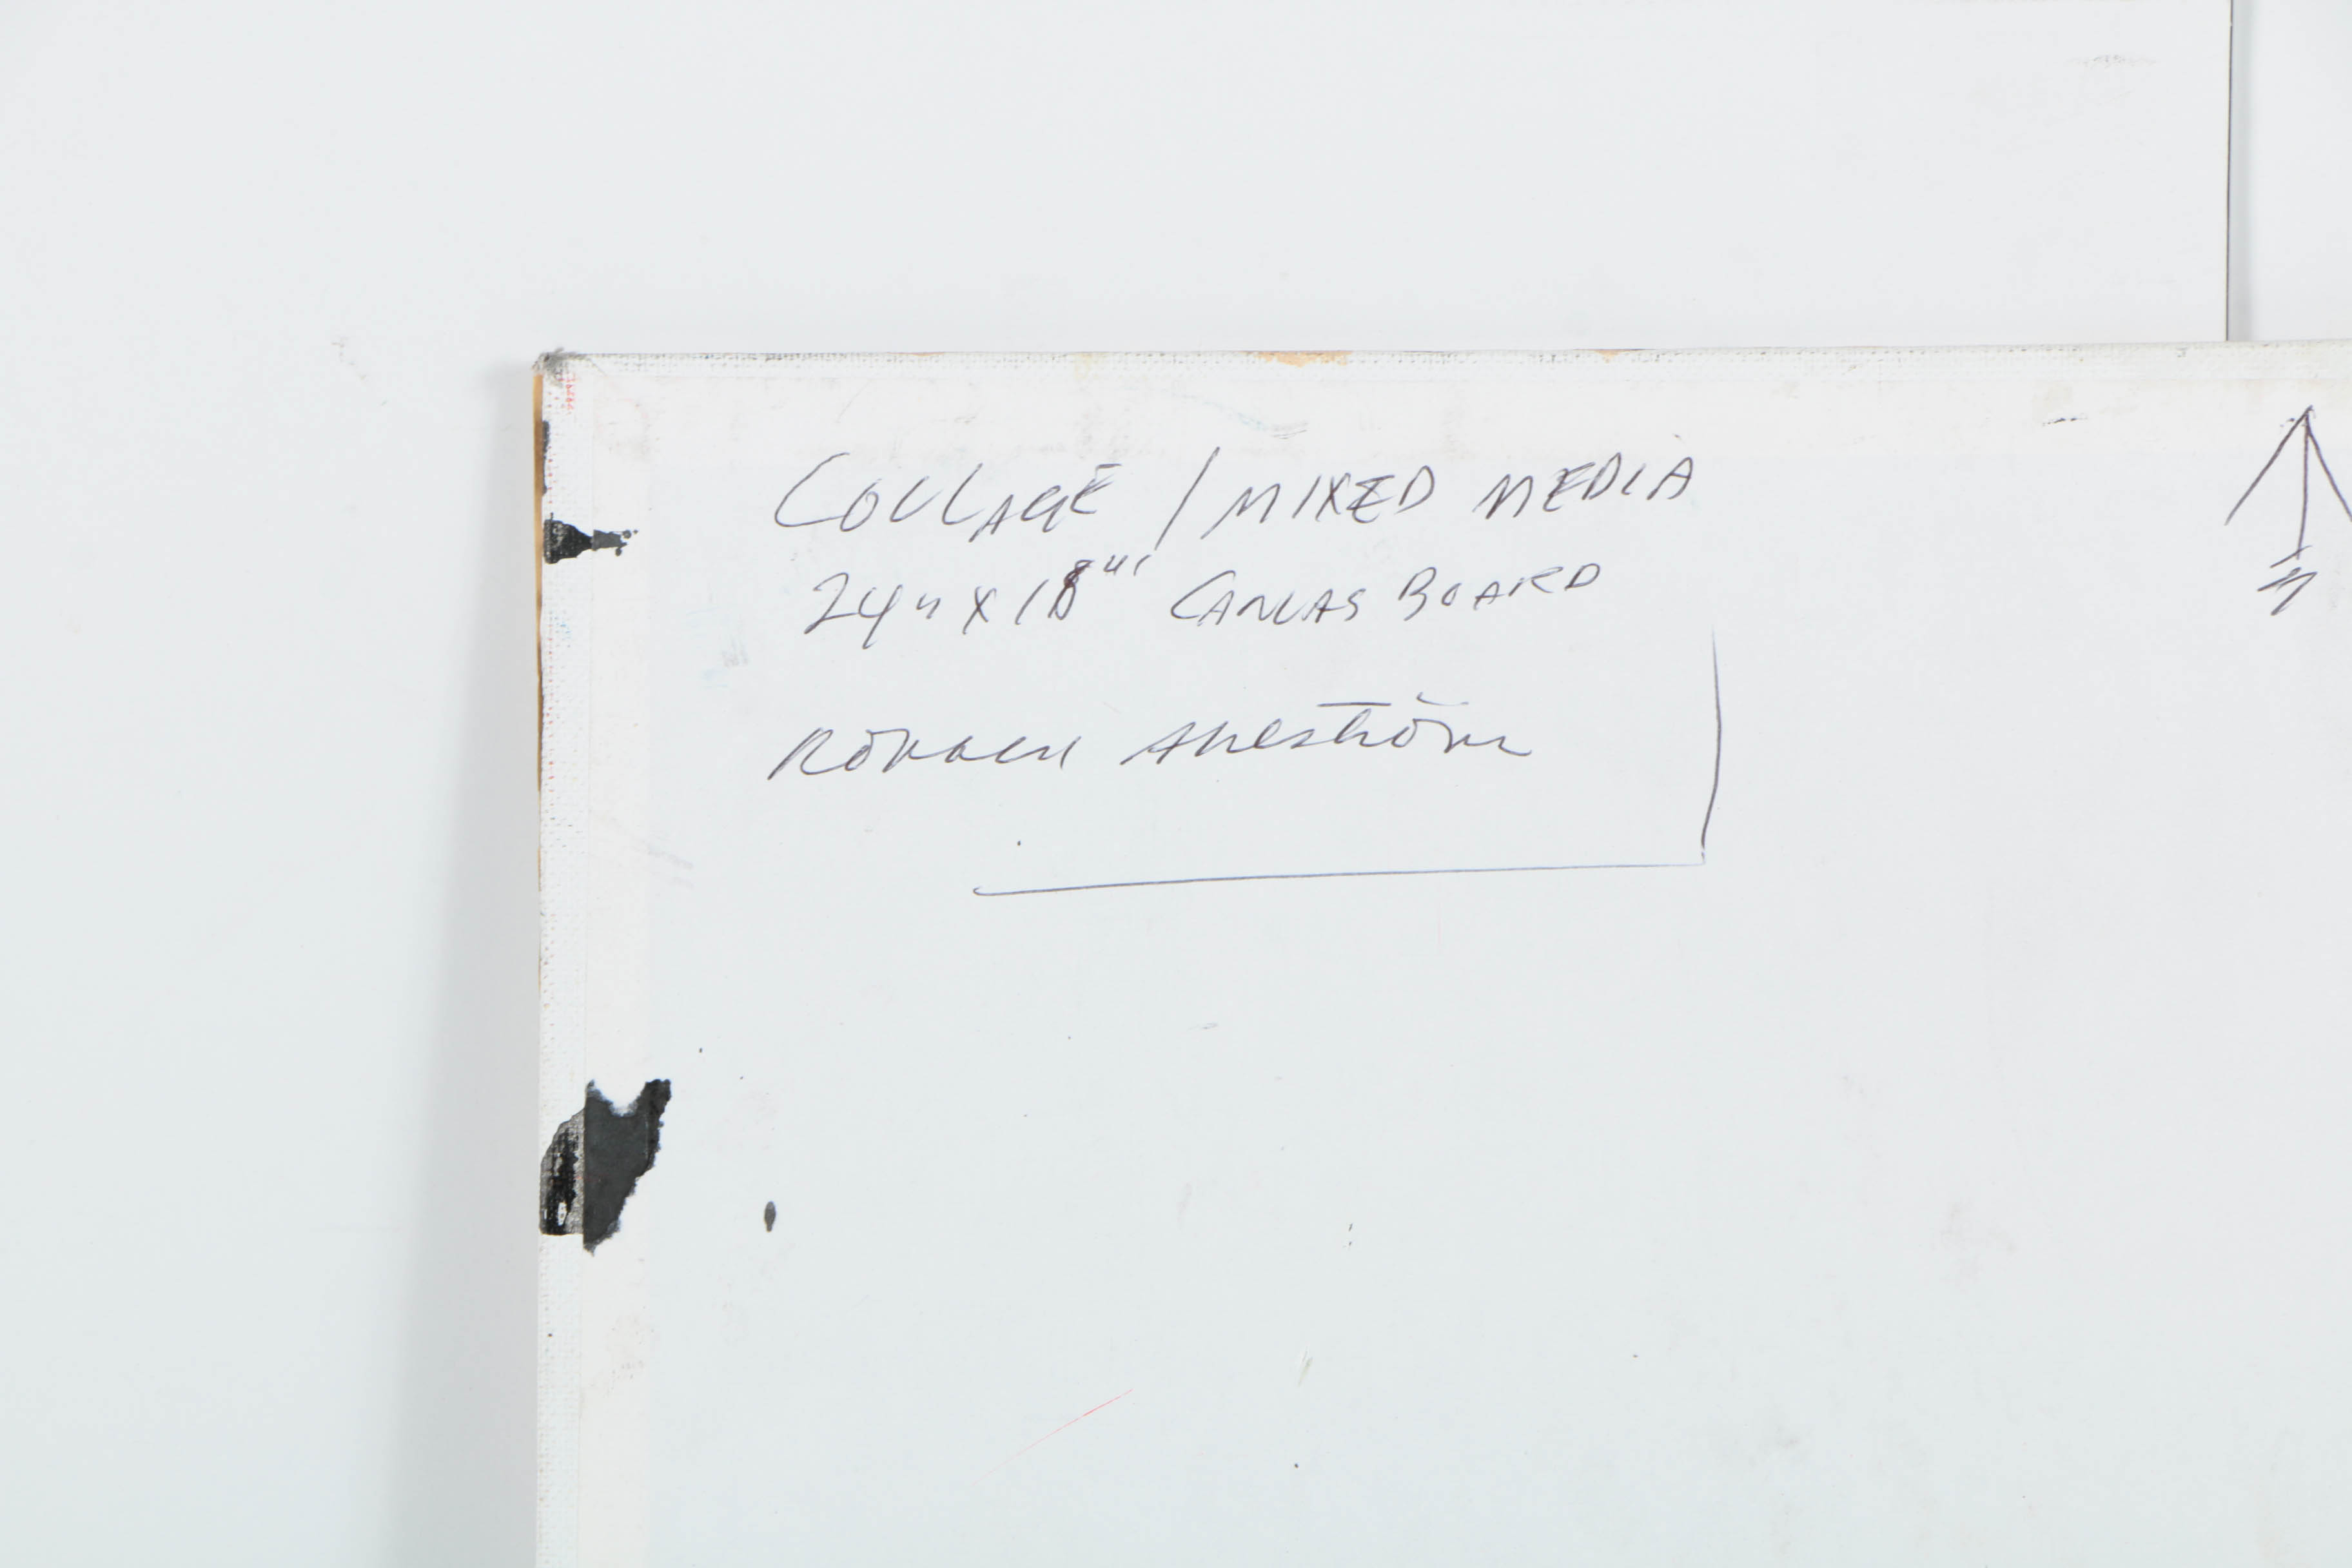 COLLAGE / MIXED MEDIA
24" X 18" CANVAS BOARD
Ronald Ahlström